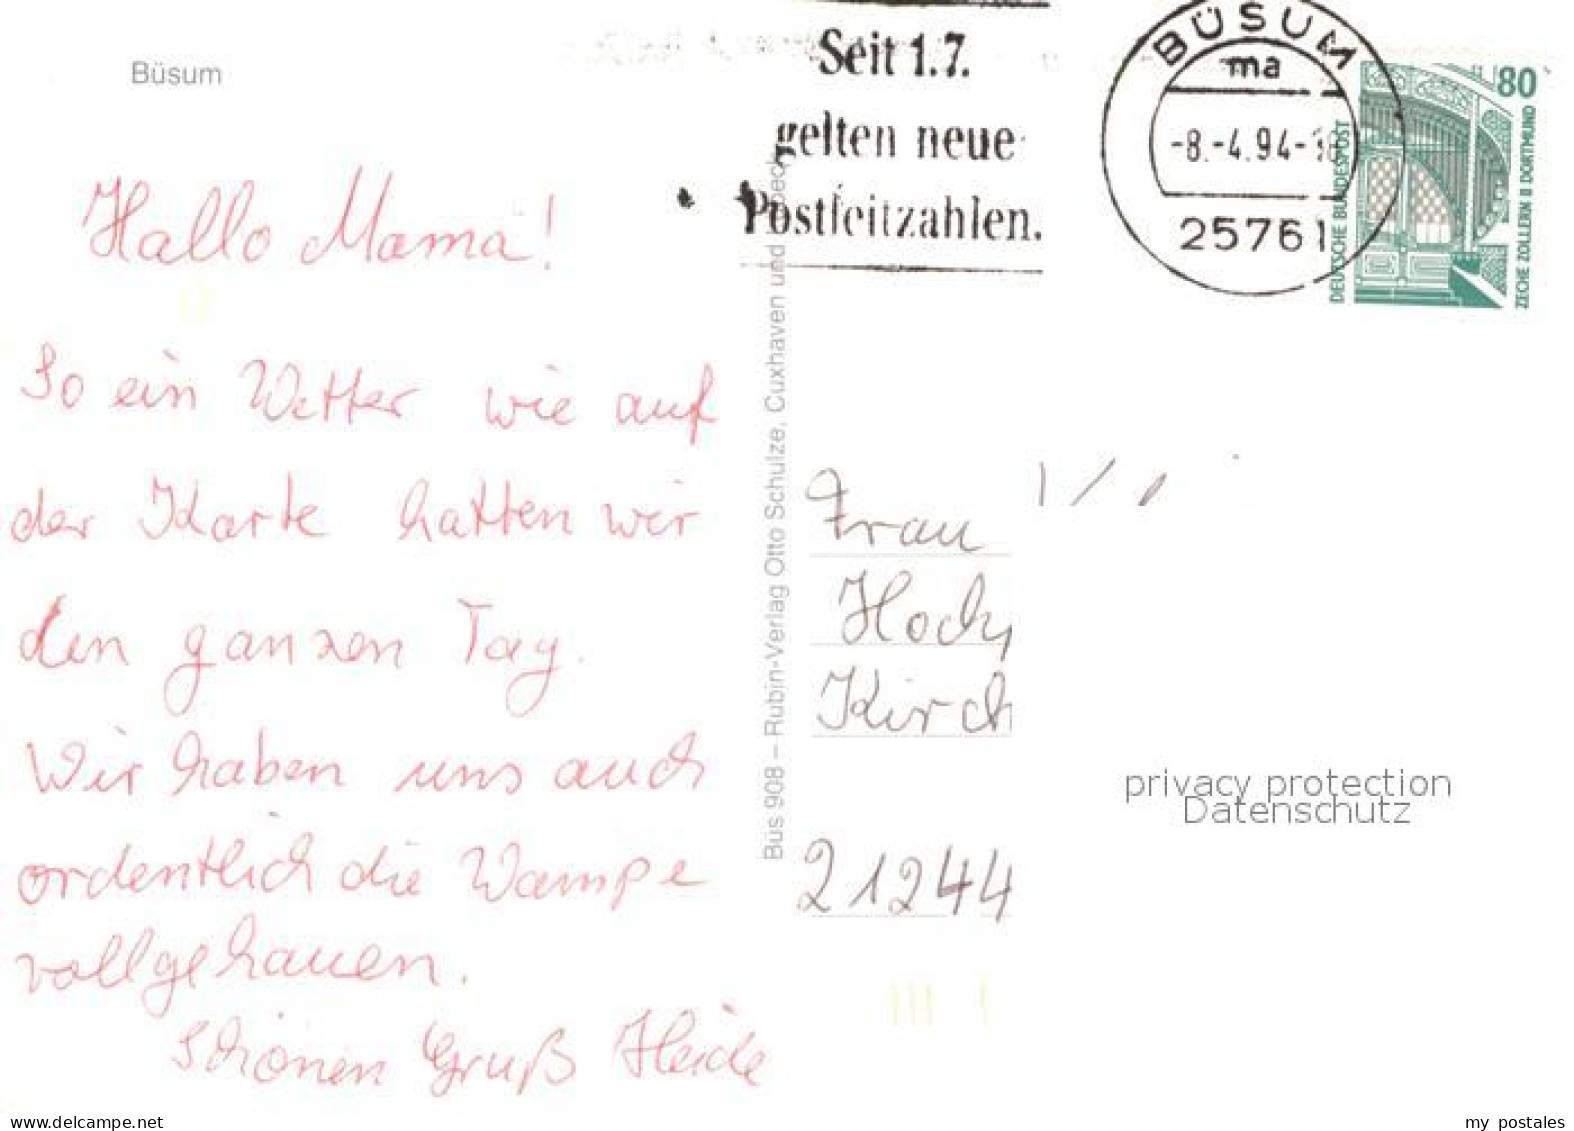 Büsum
Seit 1.7.
gelten neue
Postleitzahlen.
BÜSUM
ma
-8.-4.94-
25761
80
DEUTSCHE BUNDESPOST
ZECHE ZOLLERN II DORTMUND
Hallo Mama!
So ein Wetter wie auf
der Karte hatten wir
den ganzen Tag.
Wir haben uns auch
ordentlich die Wampe
vollgehauen.
Schönen Gruß Heide
Büs 908 – Rubin-Verlag Otto Schulze, Cuxhaven und
Frau
Kirch
21244
privacy protection
Datenschutz
www.delcampe.net
my_postales